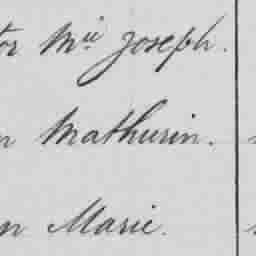 Mie Joseph.
Mathurin.
Marie.